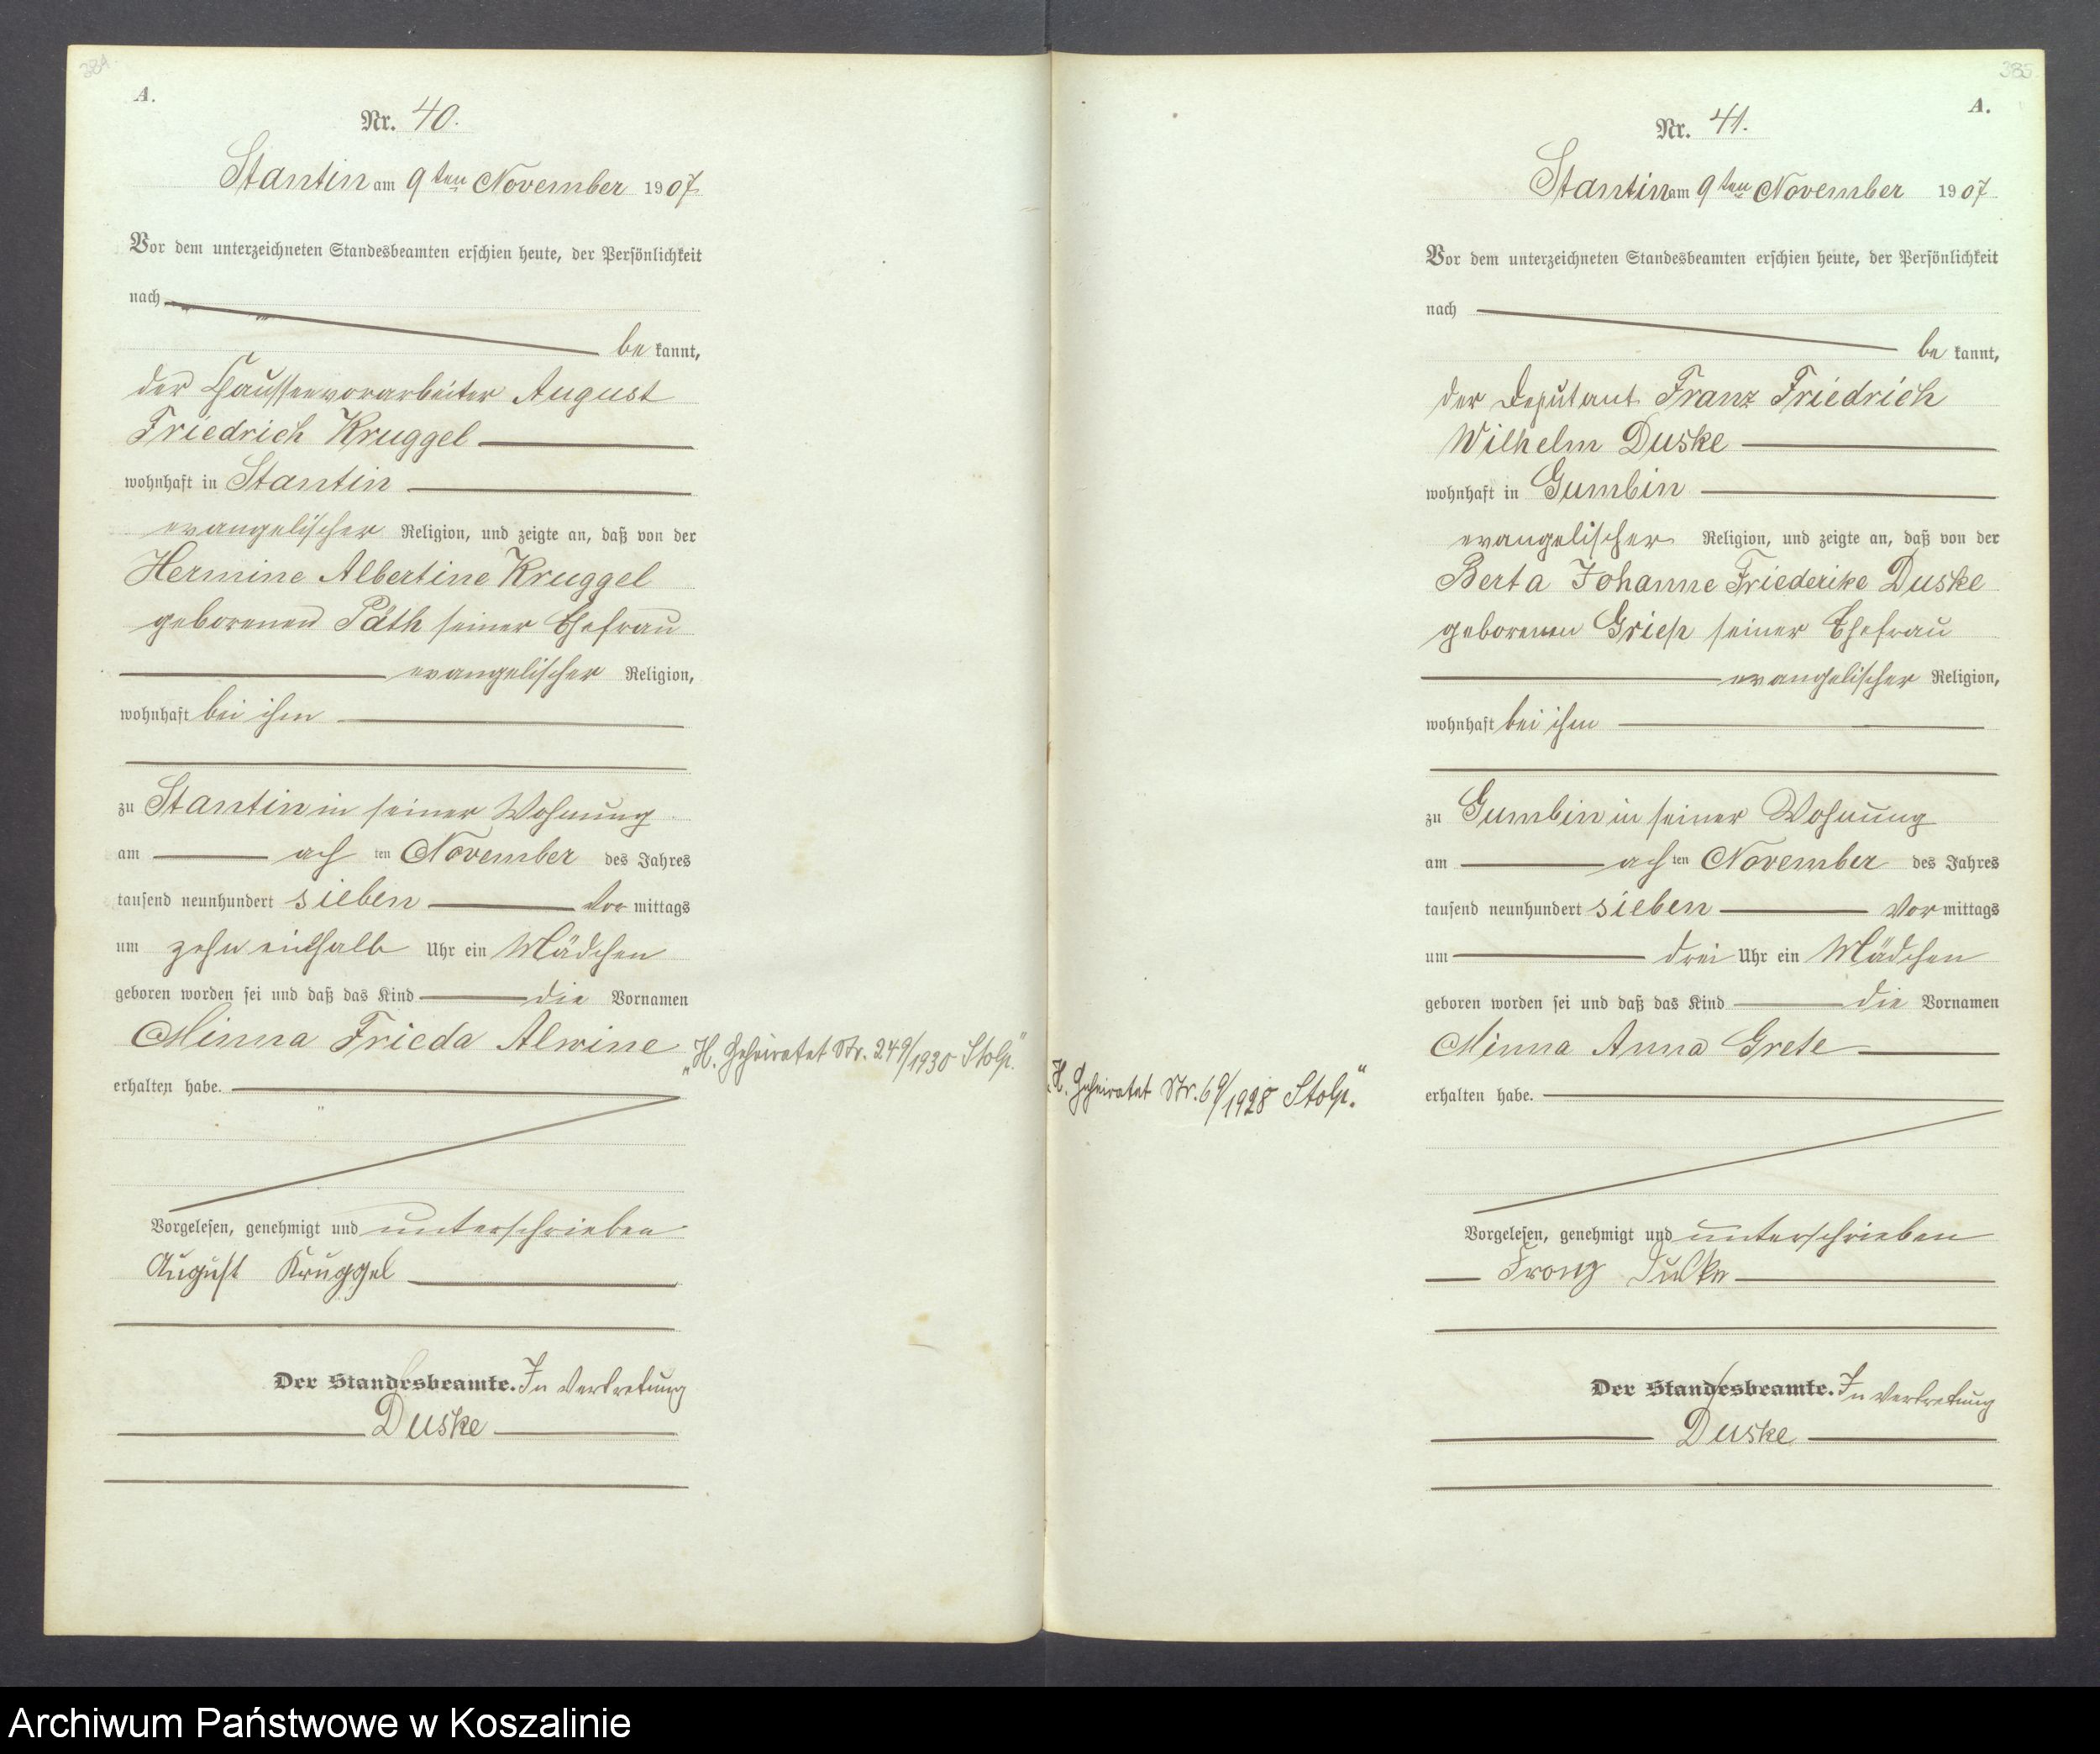 384.
A.
Nr. 40.
Stantin am 9ten November 1907.
Vor dem unterzeichneten Standesbeamten erschien heute, der Persönlichkeit
nach
be kannt,
der Chausseevorarbeiter August
Friedrich Kruggel
wohnhaft in Stantin
evangelischer Religion, und zeigte an, daß von der
Hermine Albertine Kruggel
geborenen Päth seiner Ehefrau
evangelischer Religion,
wohnhaft bei ihm
zu Stantin in seiner Wohnung
am ach ten November des Jahres
tausend neunhundert sieben Vor mittags
um zehneinhalb Uhr ein Mädchen
geboren worden sei und daß das Kind die Vornamen
Minna Frieda Alwine
„H. Geheiratet Nr. 249/1930 Stolp."
erhalten habe.
Vorgelesen, genehmigt und unterschrieben
August Kruggel
Der Standesbeamte. In Vertretung
Duske
385.
A.
Nr. 41.
Stantin am 9ten November 1907
Vor dem unterzeichneten Standesbeamten erschien heute, der Persönlichkeit
nach
be kannt,
der Deputant Franz Friedrich
Wilhelm Duske
wohnhaft in Gumbin
evangelischer Religion, und zeigte an, daß von der
Berta Johanne Friederike Duske
geborenen Griep seiner Ehefrau
evangelischer Religion,
wohnhaft bei ihm
zu Gumbin in seiner Wohnung
am ach ten November des Jahres
tausend neunhundert sieben Vor mittags
um drei Uhr ein Mädchen
geboren worden sei und daß das Kind die Vornamen
Minna Anna Grete
„H. Geheiratet Nr. 69/1928 Stolp."
erhalten habe.
Vorgelesen, genehmigt und unterschrieben
Franz Duske
Der Standesbeamte. In Vertretung
Duske
Archiwum Państwowe w Koszalinie